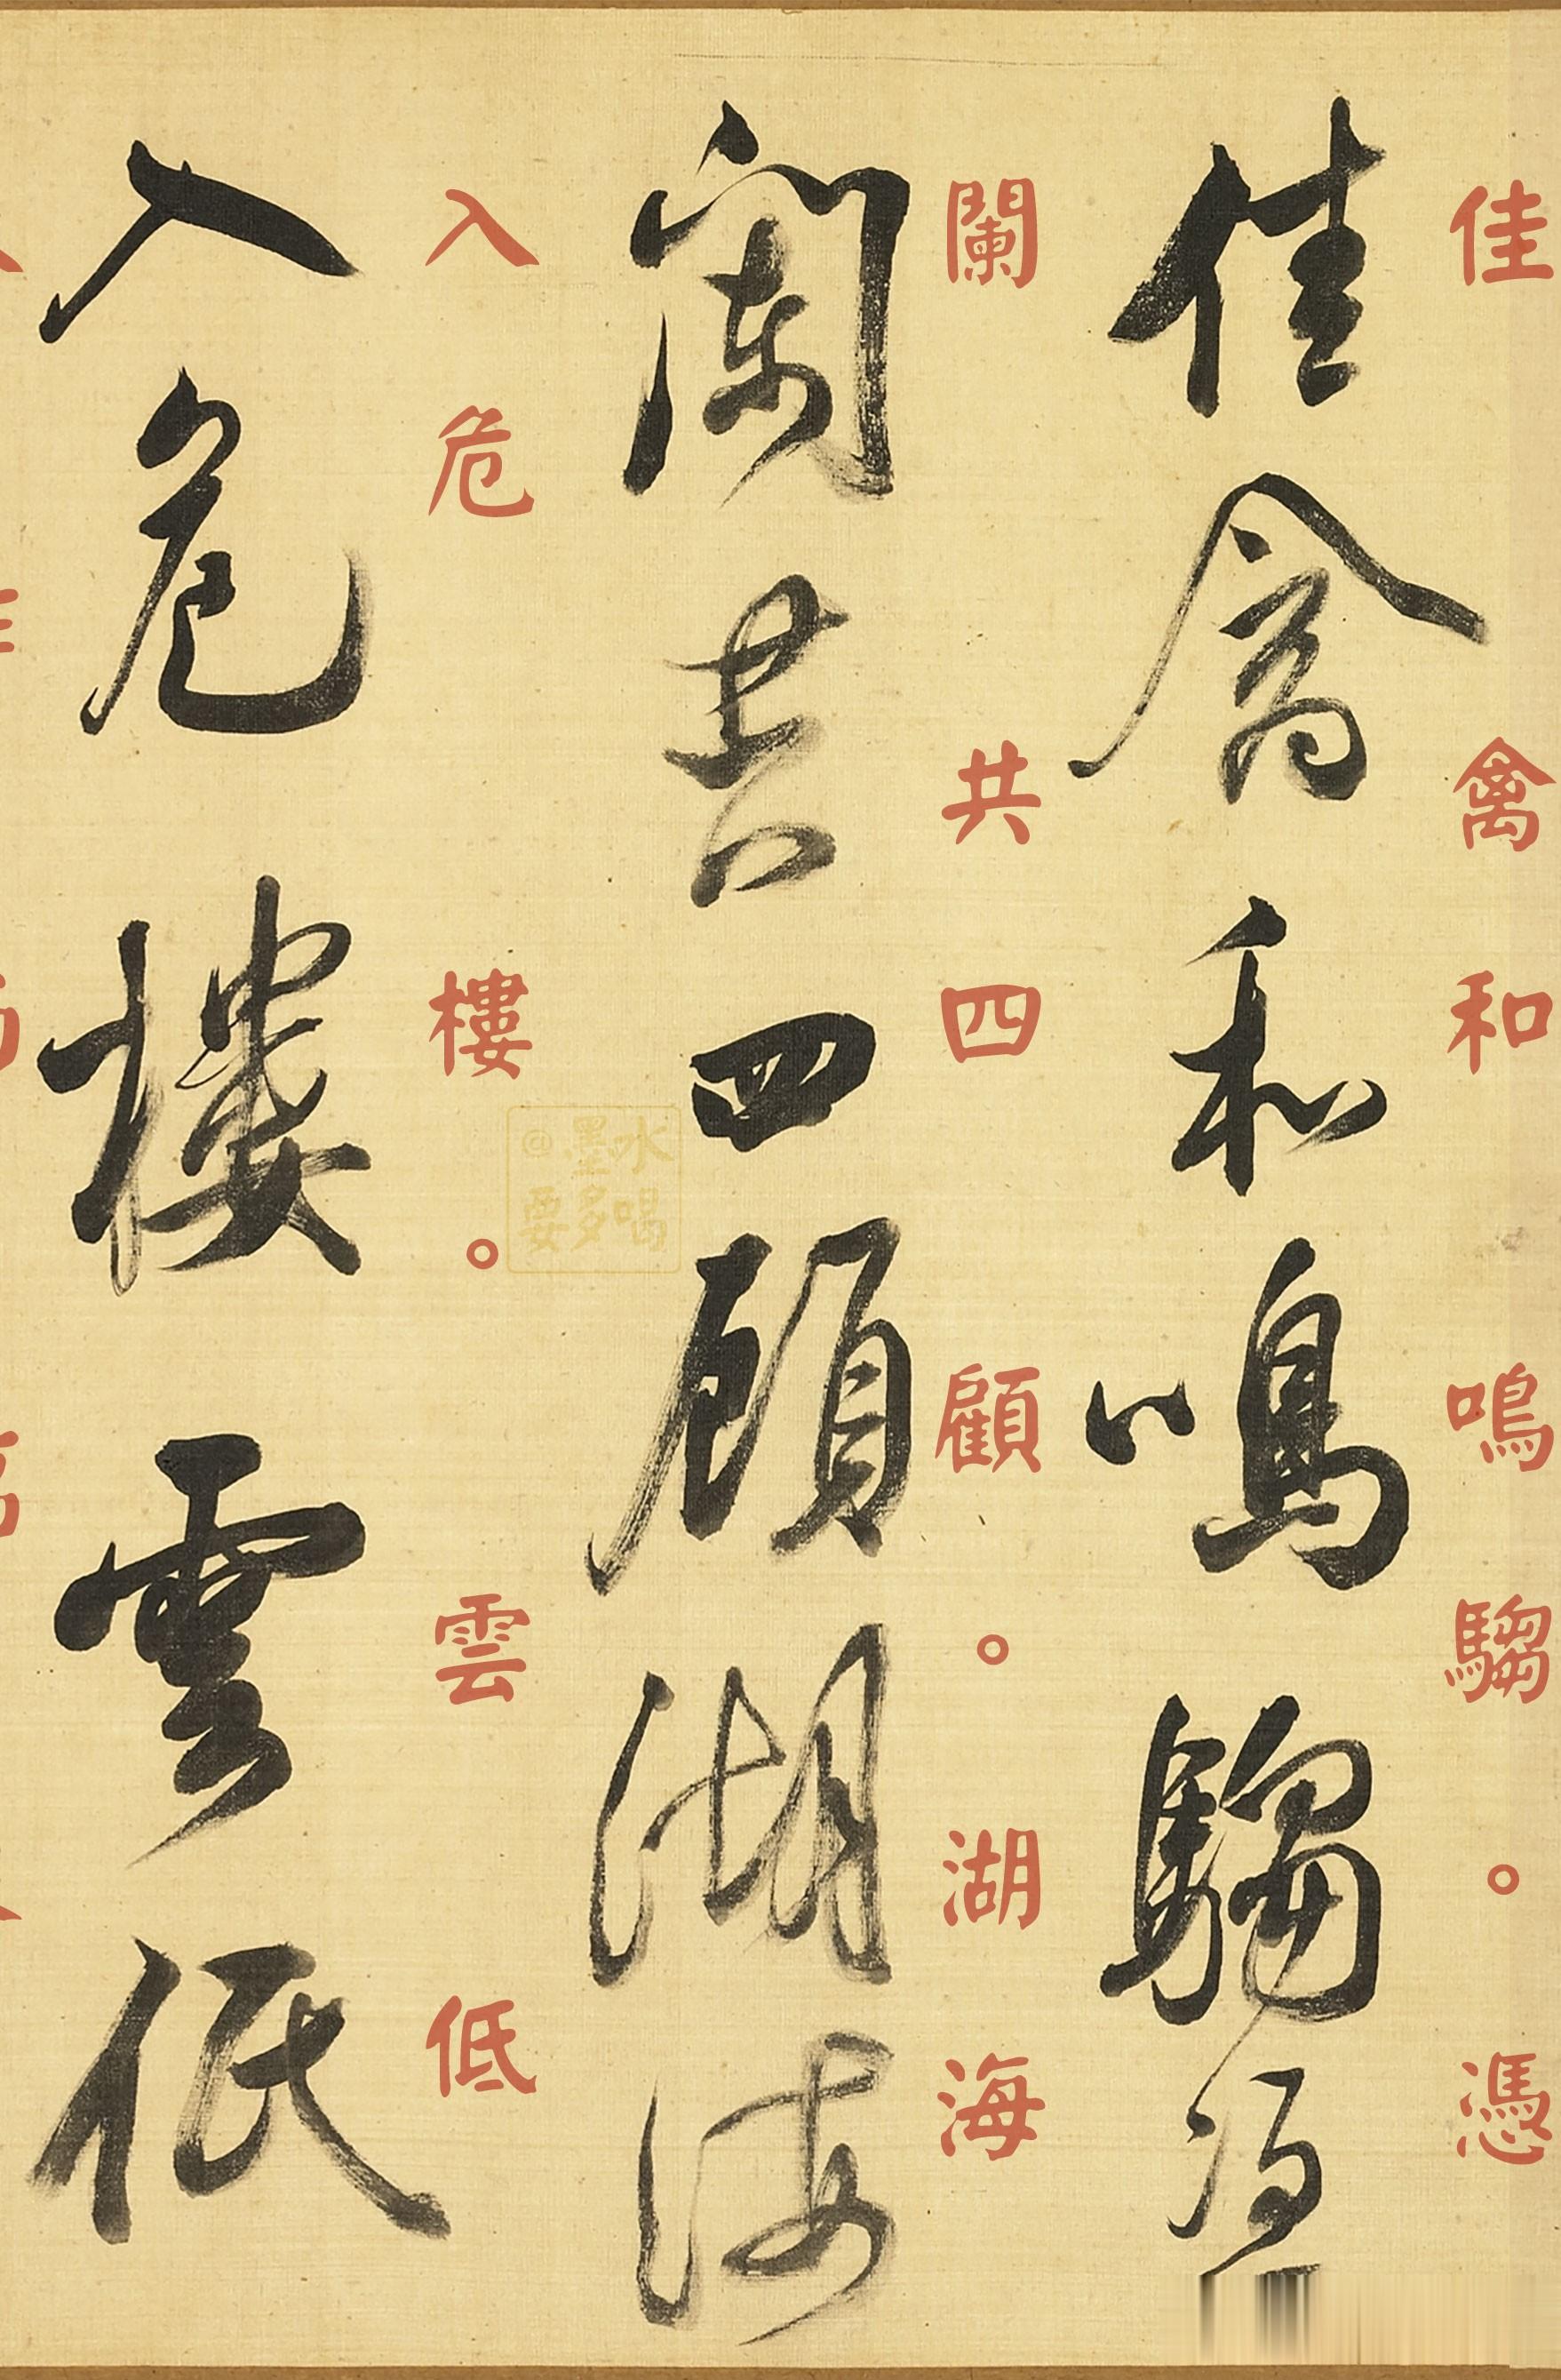 佳禽和鳴騶。憑
佳禽和鳴騶憑
闌共四顧。湖海
闌共四顧湖海
入危樓。雲低
入危樓雲低
@墨水
要多喝